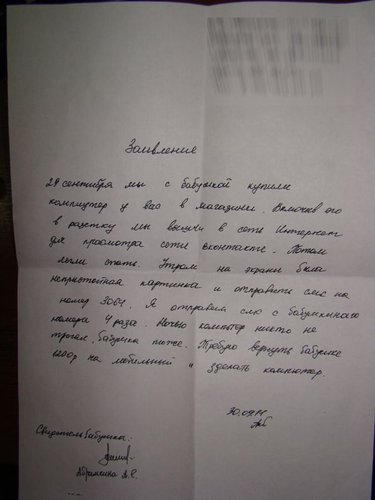 Заявление
29 сентября мы с бабушкой купили
компьютер у вас в магазине. Включив его
в разетку мы вышли в сети Интернет
для просмотра сети вконтакте. Потом
легли спать. Утром на экране была
непристойная картинка и отправить смс на
номер 3064. Я отправил смс с бабушкиного
номера 4 раза. Ночью компьютер никто не
трогал, бабушка тоже. Требую вернуть бабушке
1200р на мобильный и зделать компютор.
30.09.11
Свидетель бабушка:
Абрамкина А.С.